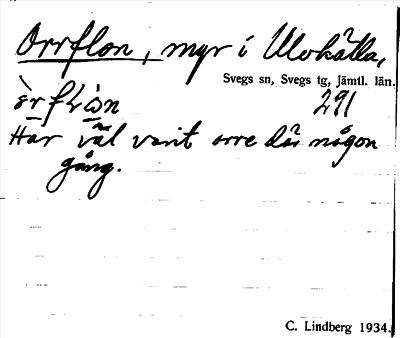 Orrflon, myr i Ulvkälla,
Svegs sn, Svegs tg, Jämtl. län.
291
Här väl varit orre där någon
gång.
C. Lindberg 1934.